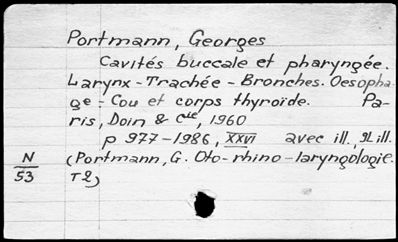 Portmann, Georges
Cavités buccale et pharyngée.
Larynx - Trachée - Bronches. Oesopha-
ge - Cou et corps thyroïde. Pa-
ris, Doin & Cie, 1960
p 977-1986, XXVI avec ill., 9L ill.
N (Portmann, G. Oto-rhino-laryngologie.
53 T2)